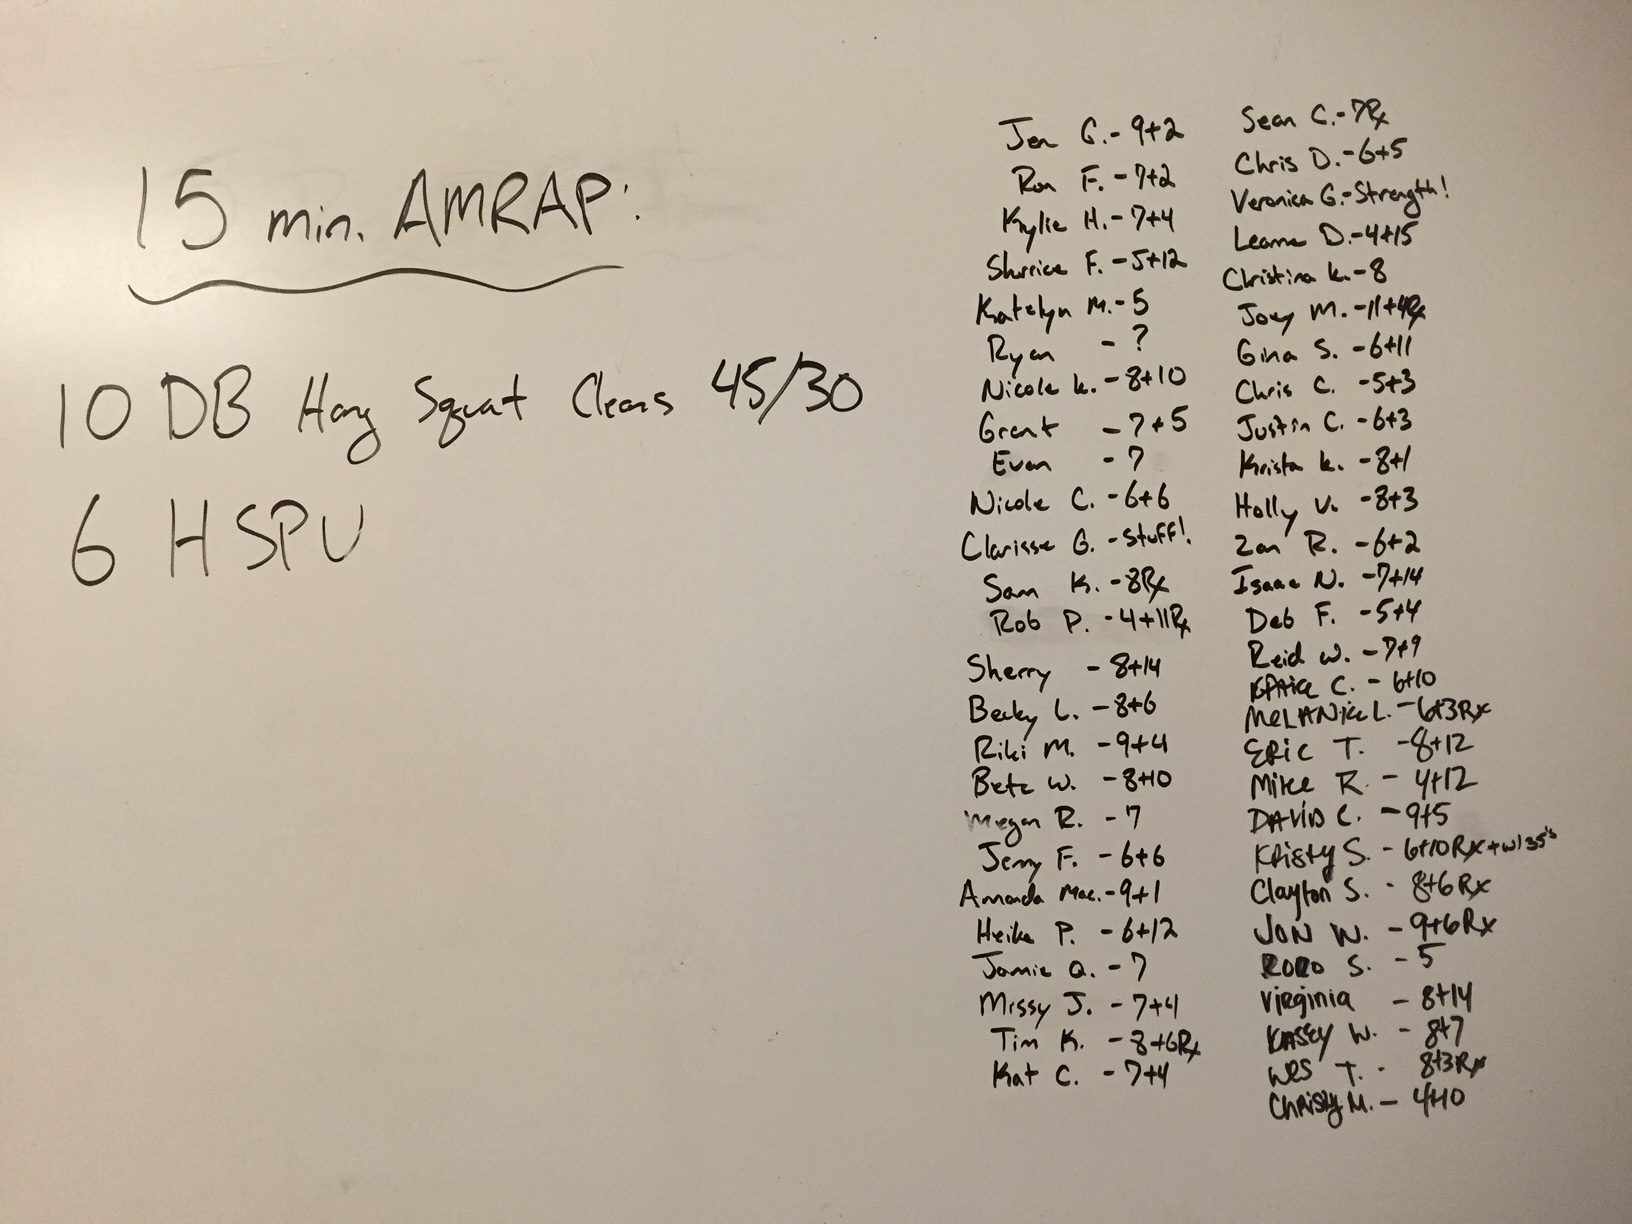 15 min. AMRAP:
10 DB Hang Squat Cleans 45/30
6 HSPU
Jen G. - 9+2
Ron F. - 7+2
Kylie H. - 7+4
Sherrice F. - 5+12
Katelyn M. - 5
Ryan - ?
Nicole K. - 8+10
Grant - 7+5
Evan - 7
Nicole C. - 6+6
Clarisse G. - Stuff!
Sam K. - 8Rx
Rob P. - 4+11Rx
Sherry - 8+14
Becky L. - 8+6
Riki M. - 9+4
Betz W. - 8+10
Megan R. - 7
Jenny F. - 6+6
Amanda Mac. - 9+1
Heike P. - 6+12
Jamie Q. - 7
Missy J. - 7+4
Tim K. - 8+6Rx
Kat C. - 7+4
Sean C. - 7Rx
Chris D. - 6+5
Veronica G. - Strength!
Leanne D. - 4+15
Christina K. - 8
Joey M. - 11+4Rx
Gina S. - 6+11
Chris C. - 5+3
Justin C. - 6+3
Krista K. - 8+1
Holly V. - 8+3
Zan R. - 6+2
Isaac N. - 7+14
Deb F. - 5+4
Reid W. - 7+9
C. - 6+10
MELANie L. - 6+3Rx
ERic T. - 8+12
Mike R. - 4+12
DAViD C. - 9+5
KRisty S. - 6+10Rx + w/35's
Clayton S. - 8+6Rx
JON W. - 9+6Rx
RORO S. - 5
Virginia - 8+14
KASEY W. - 8+7
WES T. - 8+3Rx
Christy M. - 4+10